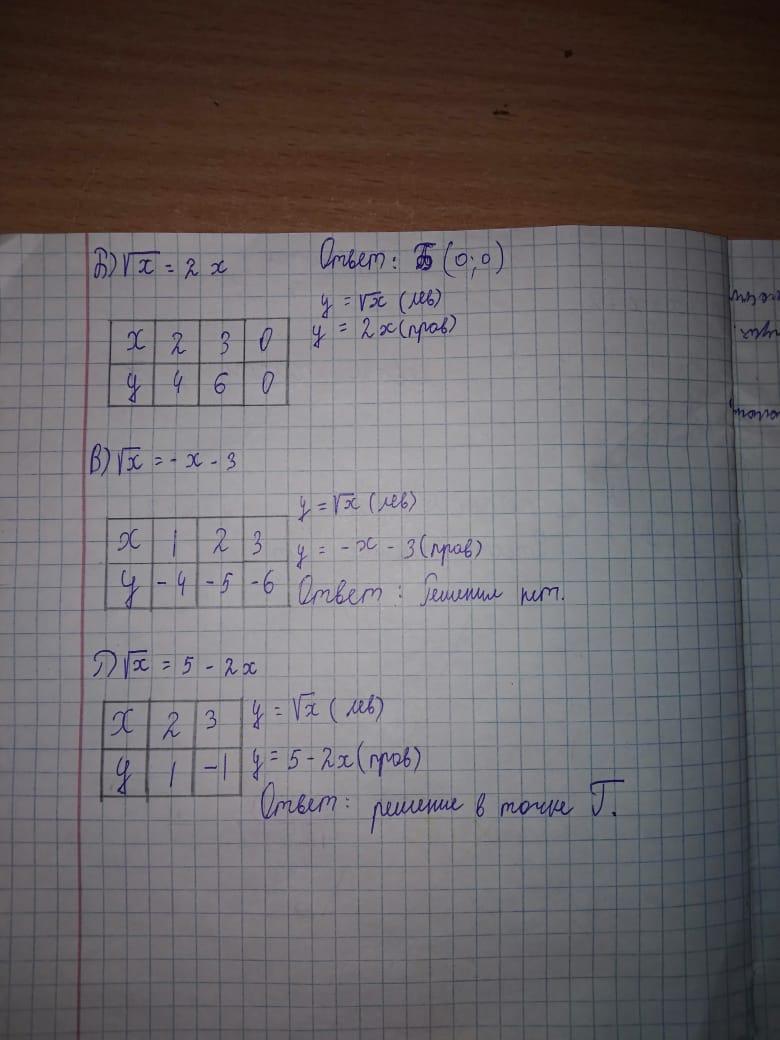 Б) √x = 2x
Ответ: Б (0;0)
y = √x (лев)
y = 2x (прав)
x 2 3 0
y 4 6 0
В) √x = - x - 3
y = √x (лев)
x 1 2 3
y = -x - 3 (прав)
y -4 -5 -6
Ответ: Решения нет.
Г) √x = 5 - 2x
x 2 3
y = √x (лев)
y 1 -1
y = 5 - 2x (прав)
Ответ: решение в точке Г.